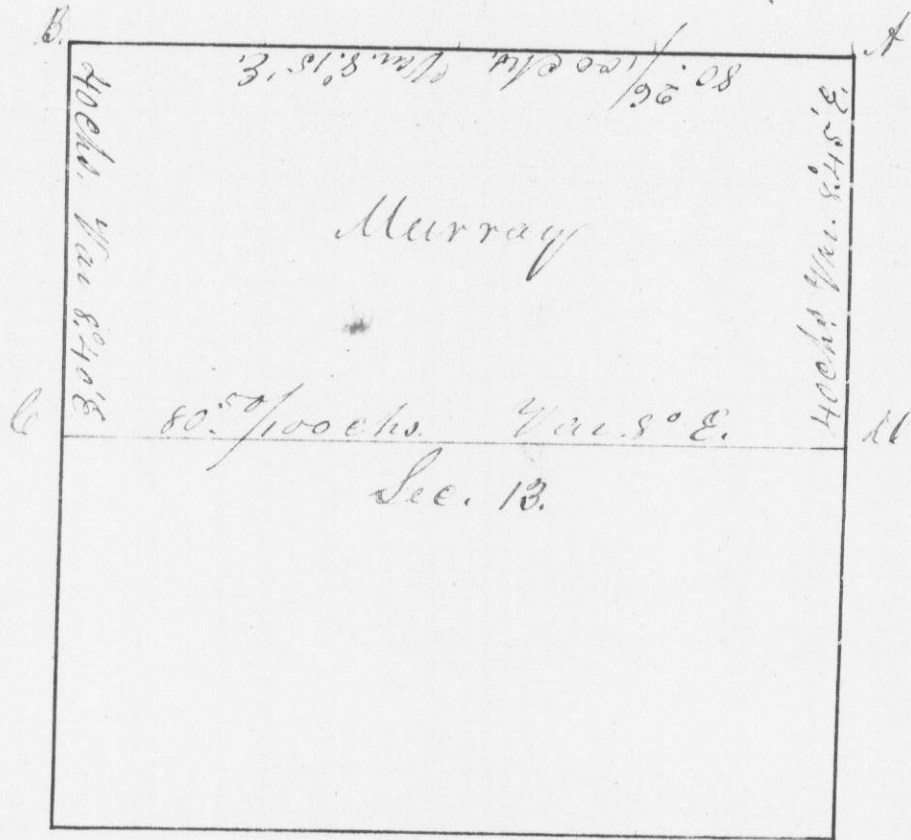 B. A
80.26/100 chs. Var. 8.°15'E.
40 Chs. Var 8.°40'E
40 Chs. Var. 8.°45'E.
Murray
C 80.50/100 chs. Var. 8° E.
Sec. 13.